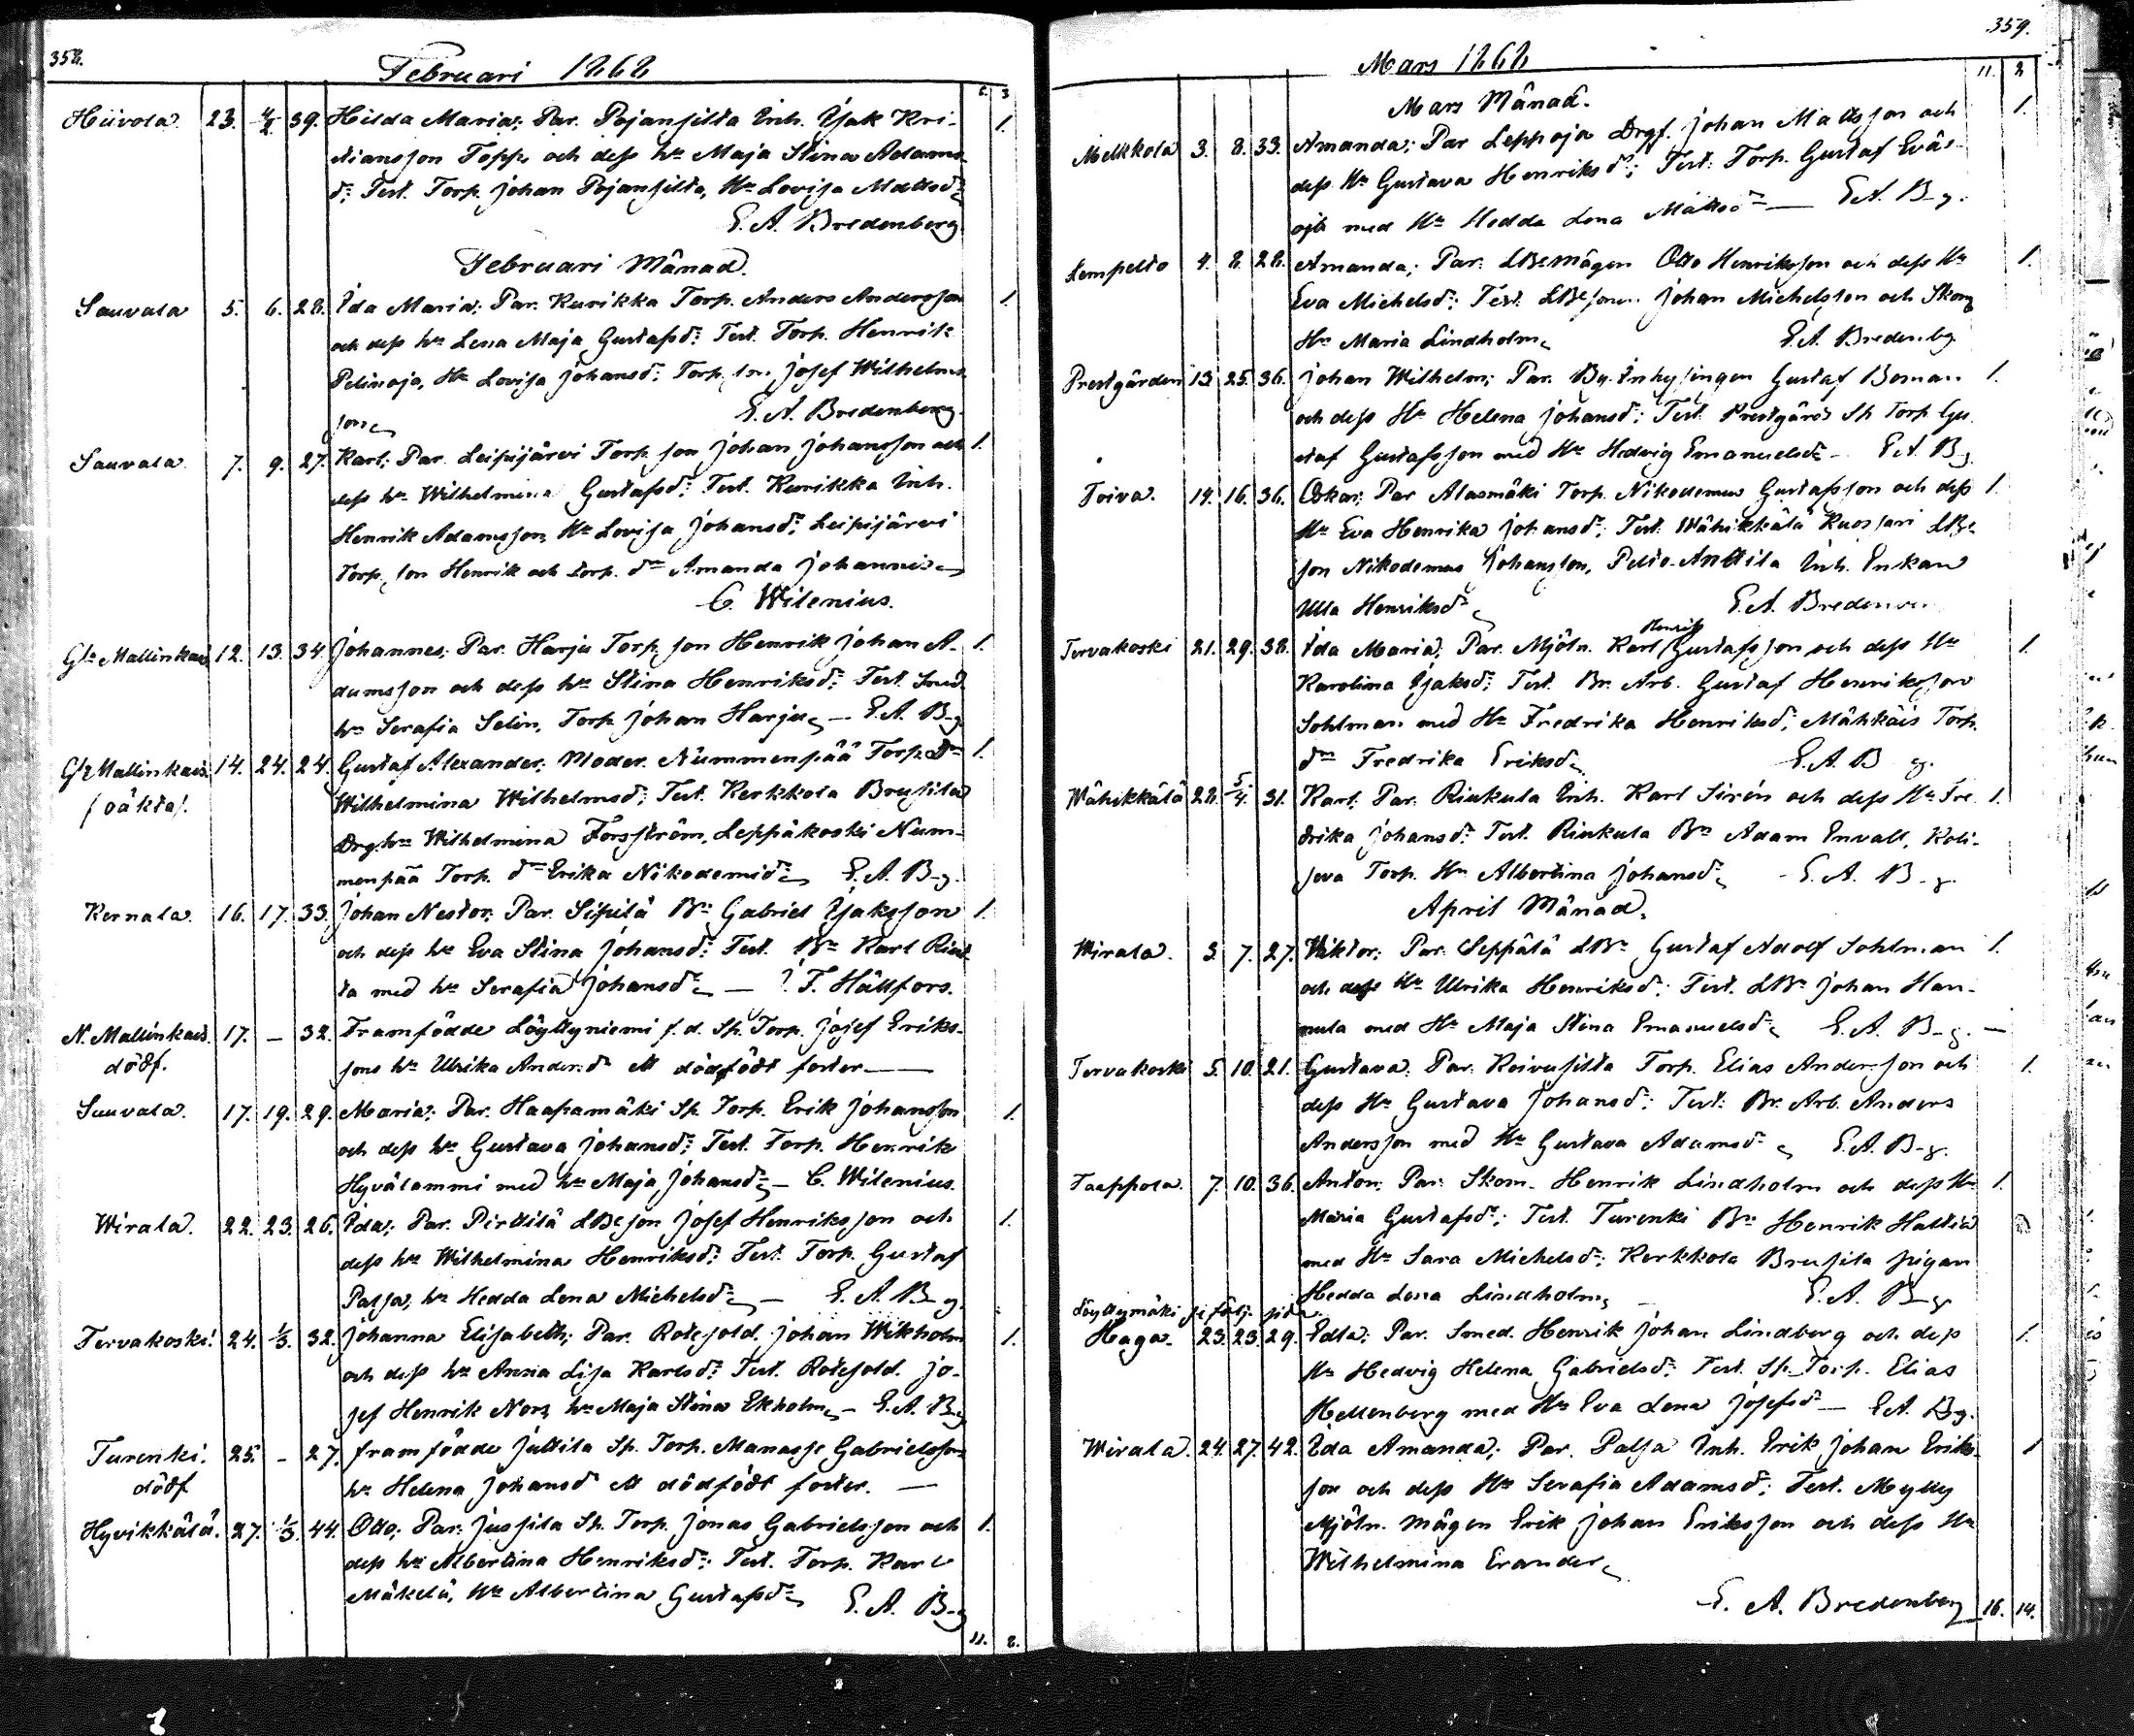 358.
Februari 1868
6. 3
Hiivola. 23. 4/2 39. Hilda Maria; Par. Pojansilta Inh. Isak Kri- 1.
stiansson Topp, och dess hu Maja Stina Adams-
dr; Test. Torp. Johan Pojansilta, Hu Lovisa Mattsdr
E. A. Bredenberg
Februari Månad.
Sauvala 5. 6. 28. Ida Maria; Par. Kurikka Torp. Anders Andersson 1.
och dess hu Lena Maja Gustafsdr: Test. Torp. Henrik
Pelinoja, Hu Lovisa Johansdr; Torp. sn. Josef Wilhelms-
son E. A. Bredenberg.
Sauvala. 7. 9. 27. Karl; Par. Leipijärvi Torp. son Johan Johansson och 1.
dess hu Wilhelmina Gustafsdr: Test. Kurikka Inh.
Henrik Adamsson, Hu Lovisa Johansdr; Leipijärvi
Torp. son Henrik och torp. dr Amanda Johannis
C. Wilenius.
Gla Mallinkais 12. 13. 34. Johannes; Par. Harju Torp. son Henrik Johan A- 1.
damsson och dess hu Stina Henriksdr: Test. Smed.
hu Serafia Selin, Torp. Johan Harju — E. A. B-g
Gla Mallinkais. 14. 24. 24. Gustaf Alexander; Moder. Nummenpää Torp. Dr 1.
/oäkta/. Wilhelmina Wilhelmsdr; Test. Kerkkola Brusila
Drg. hu Wilhelmina Forsström, Leppäkoski Num-
menpää Torp. dr Erika Nikodemidr E. A. B-g.
Kernala. 16. 17. 33. Johan Nestor; Par. Sipilä Bn Gabriel Isaksson 1.
och dess hu Eva Stina Johansdr: Test. Bn Karl Rin-
ta med hu Serafia Johansdr — F. Hällfors.
N. Mallinkais. 17. — 32. Framfödde Löyttyniemi f. d. Sp. Torp. Josef Eriks-
dödf. sons hu Ulrika Andersdr ett dödfödt foster —
Sauvala. 17. 19. 29. Maria; Par. Haapamäki Sp. Torp. Erik Johansson 1.
och dess hu Gustava Johansdr: Test. Torp. Henrik
Hyvälammi med hu Maja Johansdr — C. Wilenius.
Wirala. 22. 23. 26. Ida; Par. Pirttilä LBeson Josef Henriksson och 1.
dess hu Wilhelmina Henriksdr: Test. Torp. Gustaf
Palsa, hu Hedda Lena Michelsdr — E. A. B-g.
Tervakoski. 24. 1/3. 32. Johanna Elisabeth; Par. Rotesold. Johan Wikholm 1.
och dess hu Anna Lisa Karlsdr: Test. Rotesold. Jo-
sef Henrik Nors, hu Maja Stina Ekholm, — E. A. B-g
Turenki. 25. — 27. framfödde Juttila Sp. Torp. Manasse Gabrielssons
dödf hu Helena Johansdr ett dödfödt foster. —
Hyvikkälä. 27. 1/3. 44. Otto; Par. Jussila Sp. Torp. Jonas Gabrielsson och 1.
dess hu Albertina Henriksdr: Test. Torp. Karl
Mäkelä, Hu Albertina Gustafsdr E. A. B-g
11. 8.
359.
Mars 1868
11. 8
Mars Månad.
Melkkola 3. 8. 33. Amanda; Par. Leppoja Drgf. Johan Mattsson och 1.
dess Hu Gustava Henriksdr; Test: Torp. Gustaf Eväs-
oja med Hu Hedda Lena Mattsdr — E. A. B-g.
Lempelto 4. 8. 28. Amanda; Par: LBemågen Otto Henriksson och dess Hu 1.
Eva Michelsdr: Test. LBesonen Johan Michelsson och Skom
Hu Maria Lindholm E. A. Bredenbg
Prestgården 13. 25. 36. Johan Wilhelm; Par. By. Inhysingen Gustaf Boman 1.
och dess Hu Helena Johansdr: Test. Prestgårds Sp Torp Gu-
staf Gustafsson med Hu Hedvig Emanuelsdr — E. A. B-g
Toiva. 14. 16. 36. Oskar; Par Alasmäki Torp. Nikodemus Gustafsson och dess 1.
Hu Eva Henrika Johansdr; Test. Wähikkälä Kuossari LBe-
son Nikodemus Johansson, Pelto-Anttila Inh. Enkan
Ulla Henriksdr E. A. Bredenber
Tervakoski 21. 29. 38. Ida Maria; Par. Mjöln. Karl Henrik Gustafsson och dess Hu 1.
Karolina Isaksdr: Test. Br. Arb. Gustaf Henriksson
Sohlman med Hu Fredrika Henriksdr; Mähkäis Torp.
dr Fredrika Eriksdr E. A. B g.
Wähikkälä 28. 5/4. 31. Karl; Par. Riukula Inh. Karl Sirén och dess Hu Fre- 1.
drika Johansdr: Test. Riukula Bn Adam Envall, Koli-
seva Torp. Hu Albertina Johansdr — E. A. B-g.
April Månad.
Wirala. 3. 7. 27. Wiktor; Par. Seppälä LBn Gustaf Adolf Sohlman 1.
och dess Hu Ulrika Henriksdr; Test. LBn Johan Han-
nula med Hu Maja Stina Emanuelsdr E. A. B-g. —
Tervakoski 5. 10. 21. Gustava; Par. Koivusilta Torp. Elias Andersson och 1.
dess Hu Gustava Johansdr; Test: Br. Arb. Anders
Andersson med Hu Gustava Adamsdr E. A. B-g.
Taappola. 7. 10. 36. Anton; Par. Skom. Henrik Lindholm och dess Hu 1.
Maria Gustafsdr; Test. Turenki Bn Henrik Hattia
med Hu Sara Michelsdr; Kerkkola Brusila pigan
Hedda Lena Lindholm, E. A. B-g
Löyttymäki se följ. sida.
Haga. 23. 23. 29. Edla; Par. Smed. Henrik Johan Lindberg och dess 1.
Hu Hedvig Helena Gabrielsdr: Test. Sp. Torp. Elias
Hellenberg med Hu Eva Lena Josefsdr — E. A. B-g.
Wirala. 24. 27. 42. Ida Amanda; Par. Palsa Inh. Erik Johan Eriks- 1
son och dess Hu Serafia Adamsdr; Test. Mylly
Mjöln. mågen Erik Johan Eriksson och dess Hu
Wilhelmina Erander
E. A. Bredenberg 16. 14.